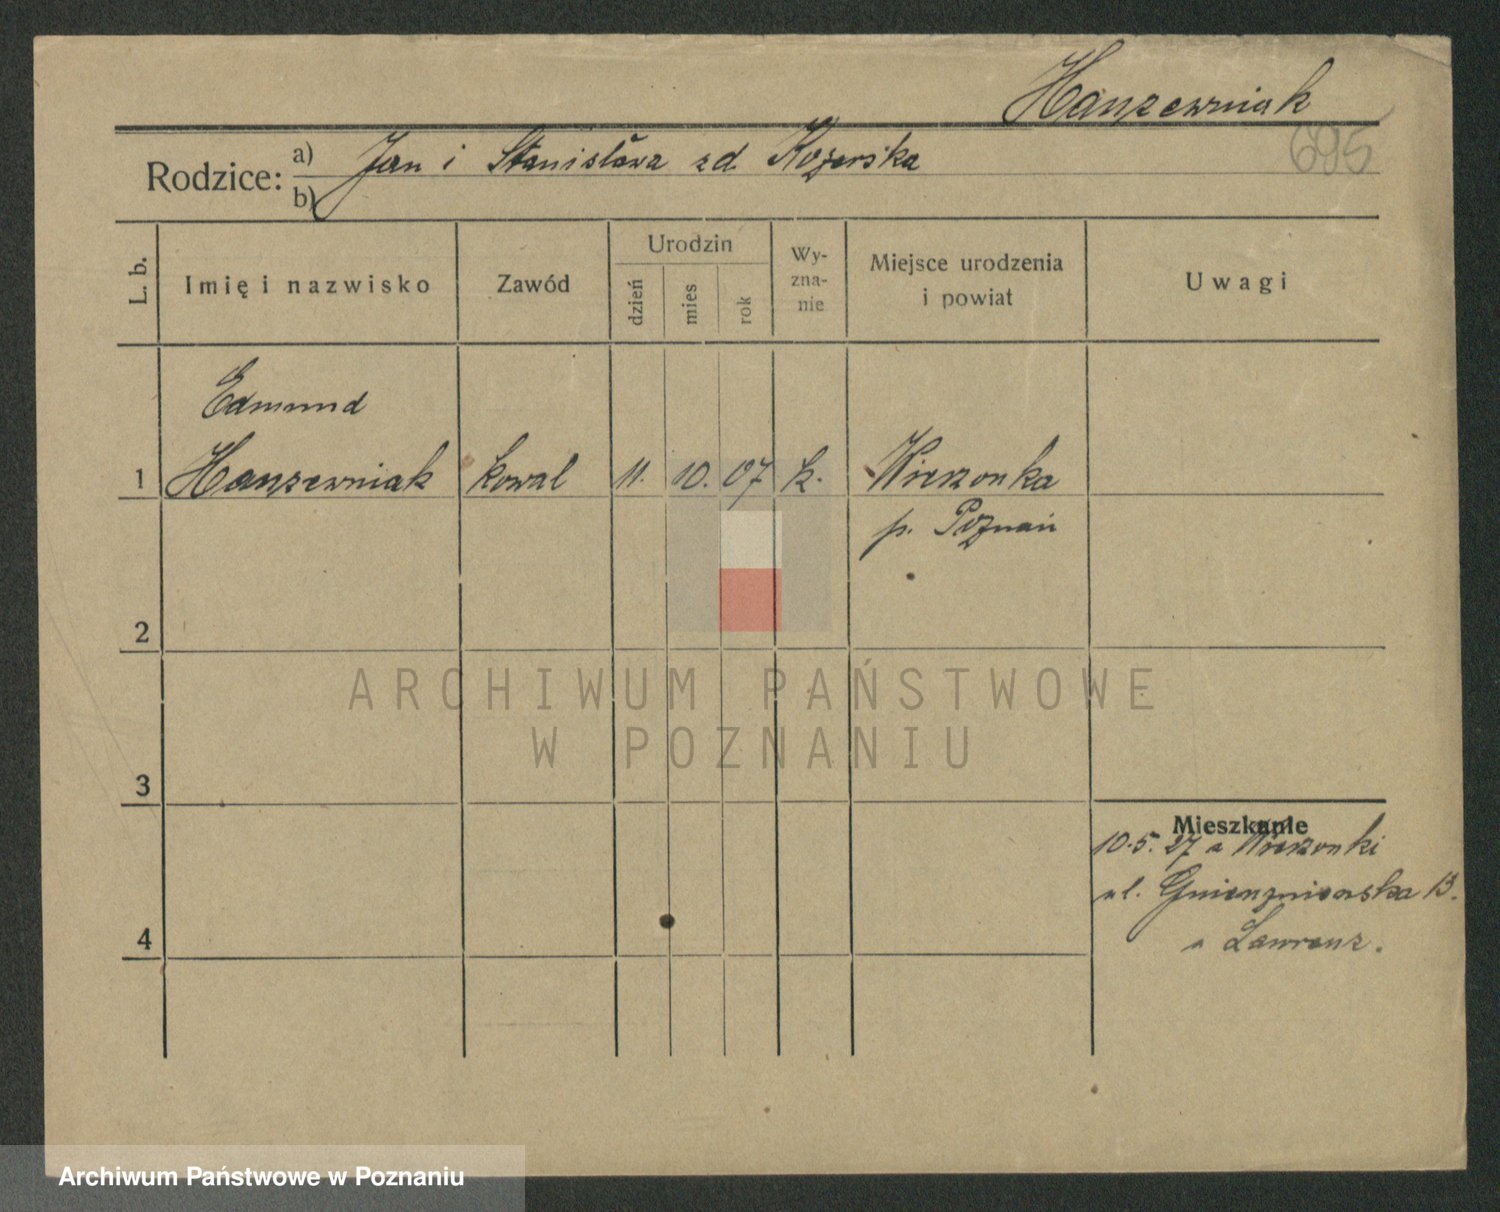 Hanzewniak
695
Rodzice: a) Jan i Stanisława zd Kozerska
b)
L. b. Imię i nazwisko Zawód Urodzin dzień mies rok Wy-zna-nie Miejsce urodzenia i powiat Uwagi
Edmund
1 Hanzewniak kowal 11. 10. 07 k. Wierzonka
p. Poznań
2
ARCHIWUM PAŃSTWOWE
W POZNANIU
3
Mieszkanie
10.5.27 a Wierzonki
ul. 13.
a Lawrenz.
4
Archiwum Państwowe w Poznaniu